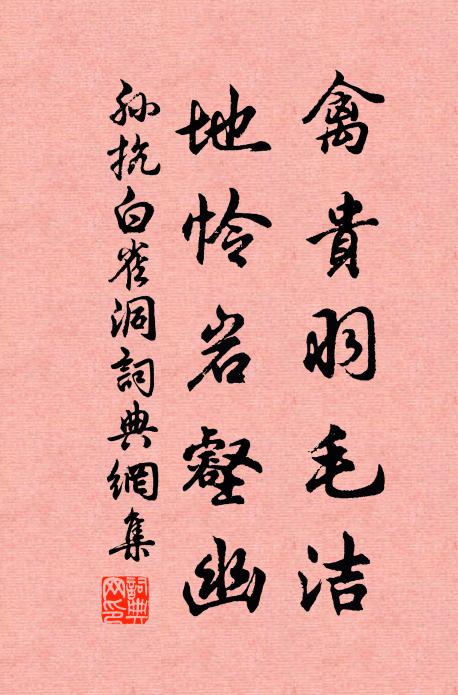 禽貴羽毛洁
地怜岩壑幽
孙抗白雀洞詞典網集
詞典網印